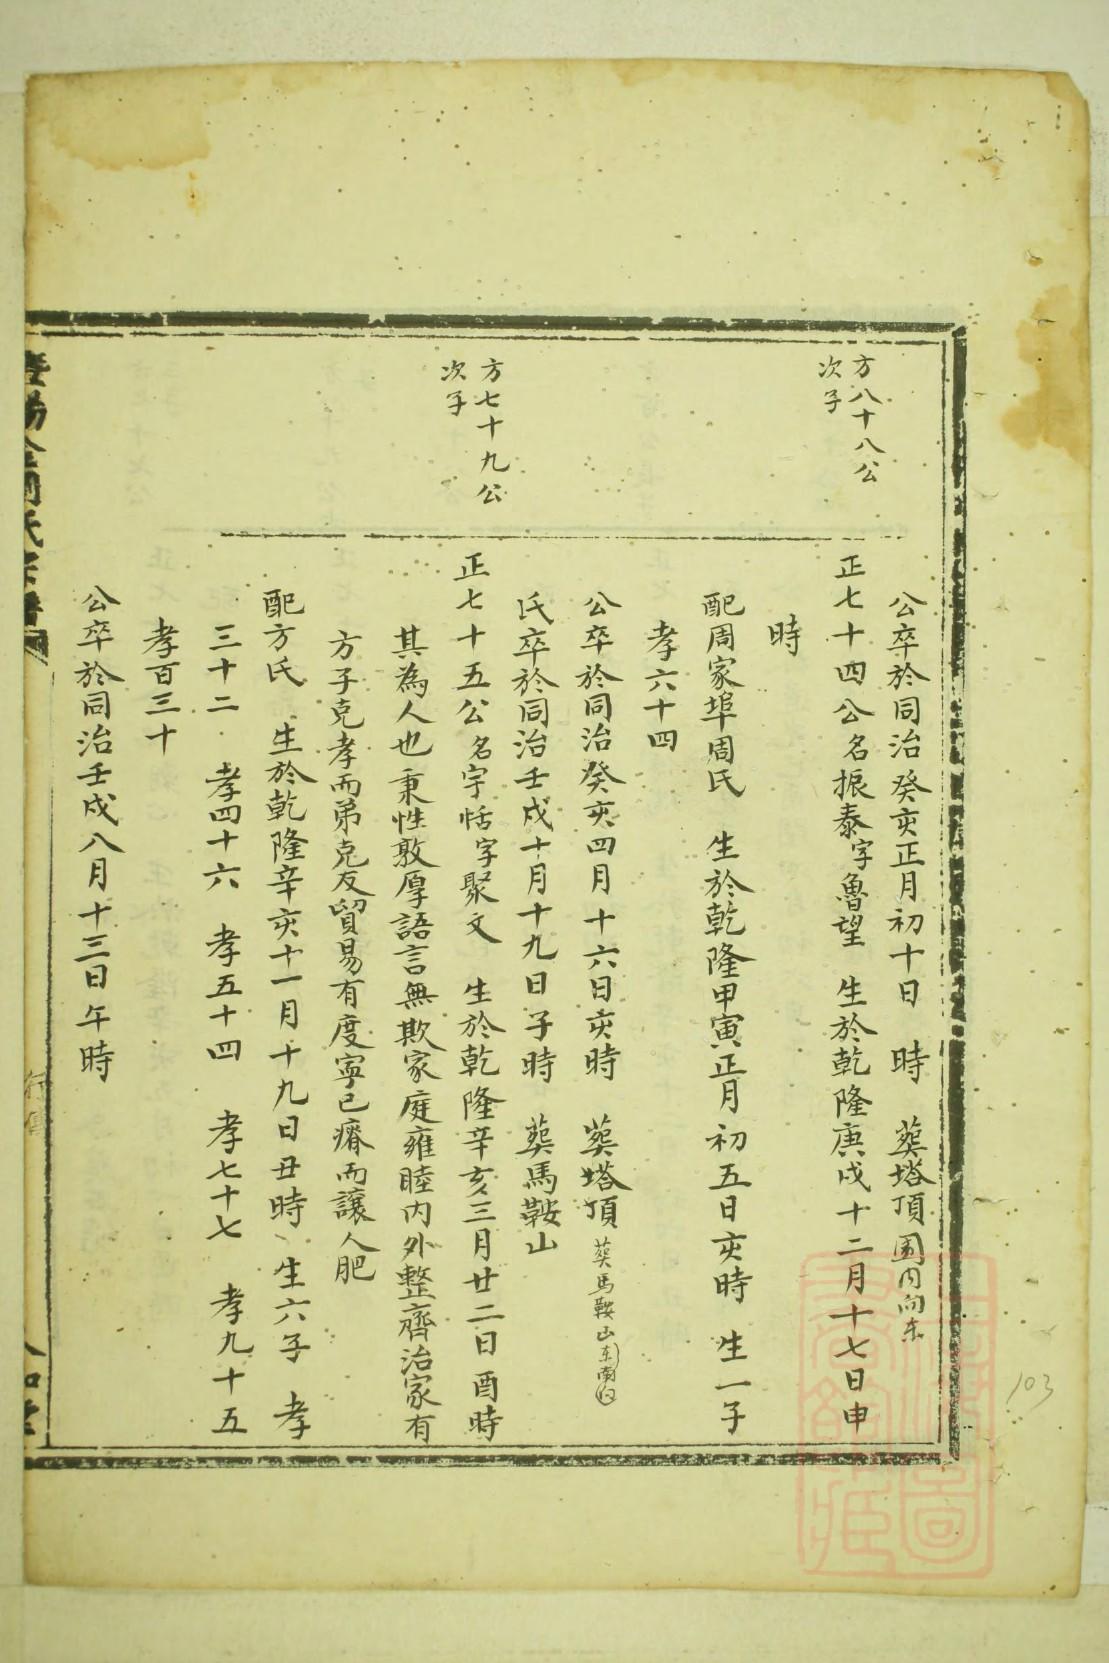 公卒於同治癸亥正月初十日 時 葬塔頂圍内向东
方八十八公
次子
正七十四公名振泰字魯望 生於乾隆庚戌十二月十七日申
時
配周家埠周氏 生於乾隆甲寅正月初五日亥時 生一子
孝六十四
公卒於同治癸亥四月十六日亥時 葬塔頂 葬馬鞍山东南向
氏卒於同治壬戌十月十九日子時 葬馬鞍山
方七十九公
次子
正七十五公名宇恬字聚文 生於乾隆辛亥三月廿二日酉時
其為人也秉性敦厚語言無欺家庭雍睦内外整齊治家有
方子克孝而弟克友貿易有度寧己瘠而讓人肥
配方氏 生於乾隆辛亥十一月十九日丑時 生六子 孝
三十二 孝四十六 孝五十四 孝七十七 孝九十五
孝百三十
公卒於同治壬戌八月十三日午時
行傳
103